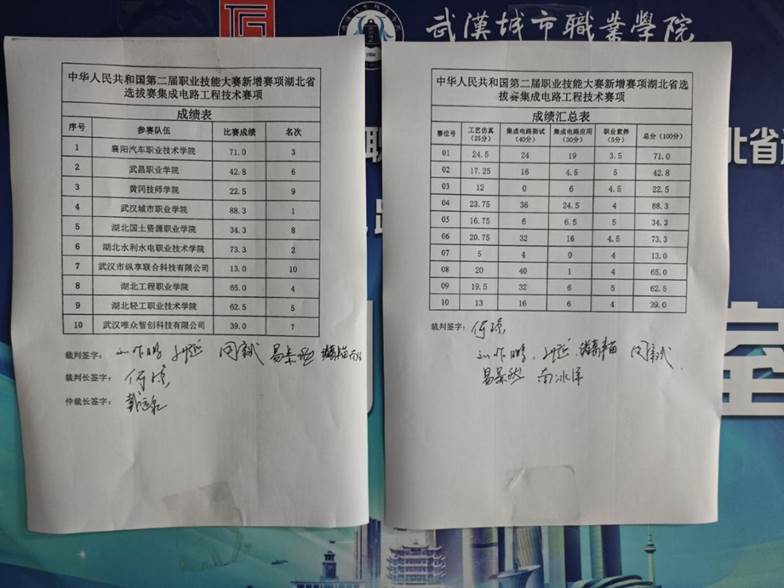 武漢城市職業学院
中华人民共和国第二届职业技能大赛新增赛项湖北省
选拔赛集成电路工程技术赛项
成绩表
序号 参赛队伍 比赛成绩 名次
1 襄阳汽车职业技术学院 71.0 3
2 武昌职业学院 42.8 6
3 黄冈技师学院 22.5 9
4 武汉城市职业学院 88.3 1
5 湖北国土资源职业学院 34.3 8
6 湖北水利水电职业技术学院 73.3 2
7 武汉市纵享联合科技有限公司 13.0 10
8 湖北工程职业学院 65.0 4
9 湖北轻工职业技术学院 62.5 5
10 武汉唯众智创科技有限公司 39.0 7
裁判签字：
裁判长签字：
件裁长签字：
中华人民共和国第二届职业技能大赛新增赛项湖北省选
拔赛集成电路工程技术赛项
成绩汇总表
赛位号 工艺仿真（25分） 集成电路测试（40分） 集成电路应用（30分） 职业素养（5分） 总分（100分）
01 24.5 24 19 3.5 71.0
02 17.25 16 4.5 5 42.8
03 12 0 6 4.5 22.5
04 23.75 36 24.5 4 88.3
05 16.75 6 6.5 5 34.3
06 20.75 32 16 4.5 73.3
07 5 4 0 4 13.0
08 20 40 1 4 65.0
09 19.5 32 6 5 62.5
10 13 16 6 4 39.0
裁判签字：
职
北省